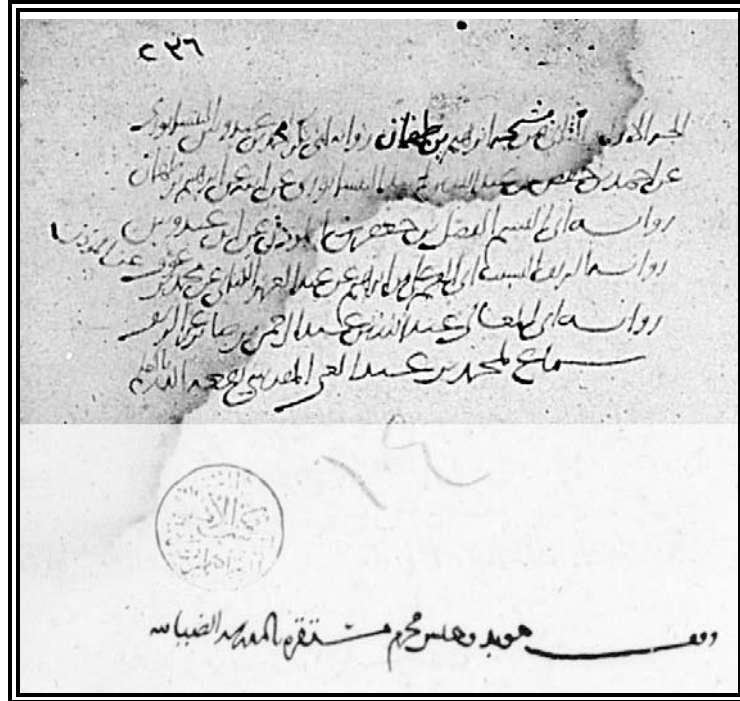 ٢٣٦
الجزء الاول والثاني من مشيخه ابرهيم بن طهمان روايه ابي بكر محمد بن عبدوس النيسابوري
عن احمد بن حفص بن عبد الله النيسابوري عن ابيه عن ابرهيم بن طهمان
روايه ابي القسم الفضل بن جعفر المؤذن عن ابن عبدوس
روايه الشريف النسيب ابي القسم علي بن ابرهيم عن عبد العزيز الكتاني عن محمد بن عوف عنه
روايه ابي المعالي عبد الله بن عبد الرحمن بن صابر عن الشريف
سماع لمحمد بن عبد الغني المقدسي نفعه الله بالعلم
وقف مؤبد وحبس محرم مستقره بالمدرسه الضيائيه